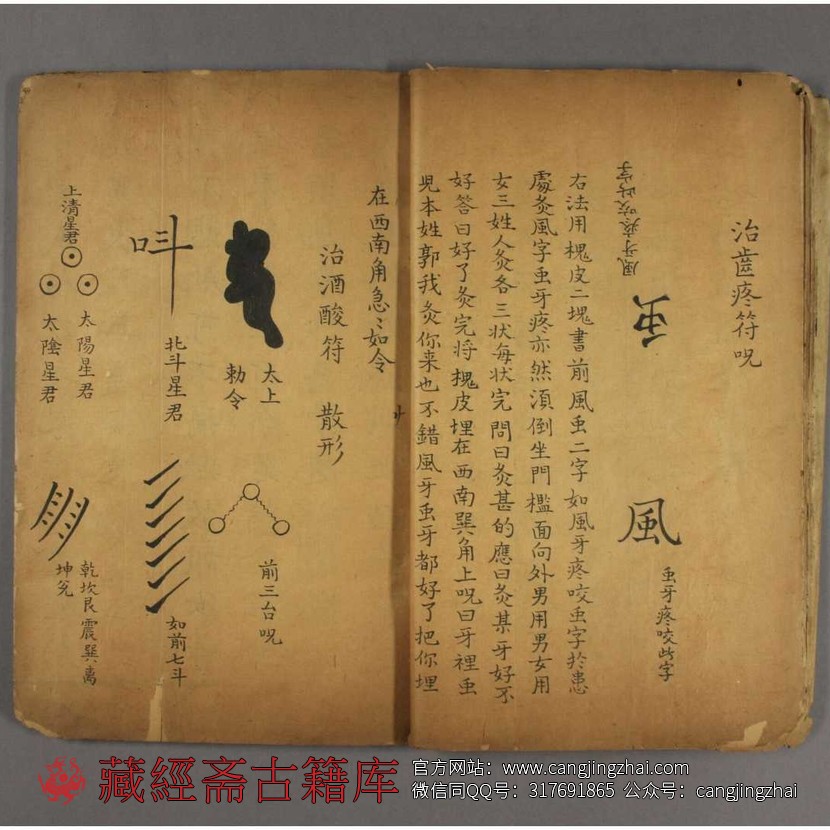 治齒疼符呪
虫
風牙疼咬此字
風
虫牙疼咬此字
右法用槐皮二塊書前風虫二字如風牙疼咬虫字扵患
處灸風字虫牙疼亦然湏倒坐門檻面向外男用男女用
女三姓人灸各三状每状完問曰灸甚的應曰灸某牙好不
好答曰好了灸完将槐皮埋在西南巽角上呪曰牙裡虫
児本姓郭我灸你来也不錯風牙虫牙都好了把你埋
在西南角急〻如令
治酒酸符　散形
太上
勅令
前三台呪
北斗星君
如前七斗
上清星君
太陽星君
太陰星君
乾坎艮震巽离
坤兊
藏經斋古籍库
官方网站：www.cangjingzhai.com
微信同QQ号：317691865 公众号：cangjingzhai